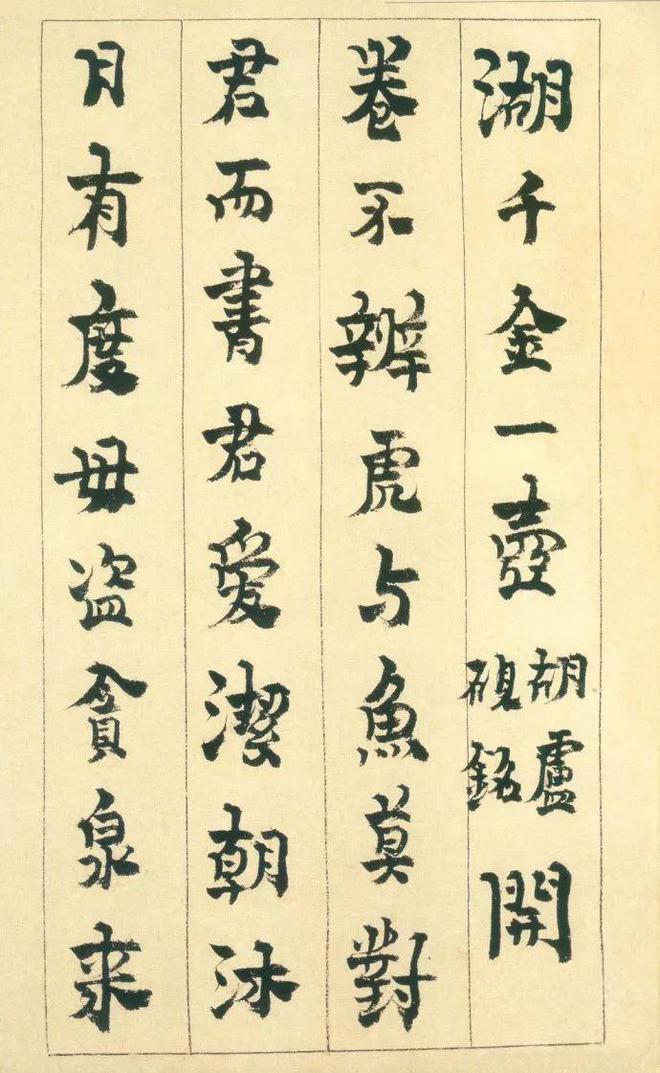 湖千金一壺胡盧硯銘開
卷不辨虎与魚莫對
君而書君愛潔朝沐
月有度毋盗貪泉來